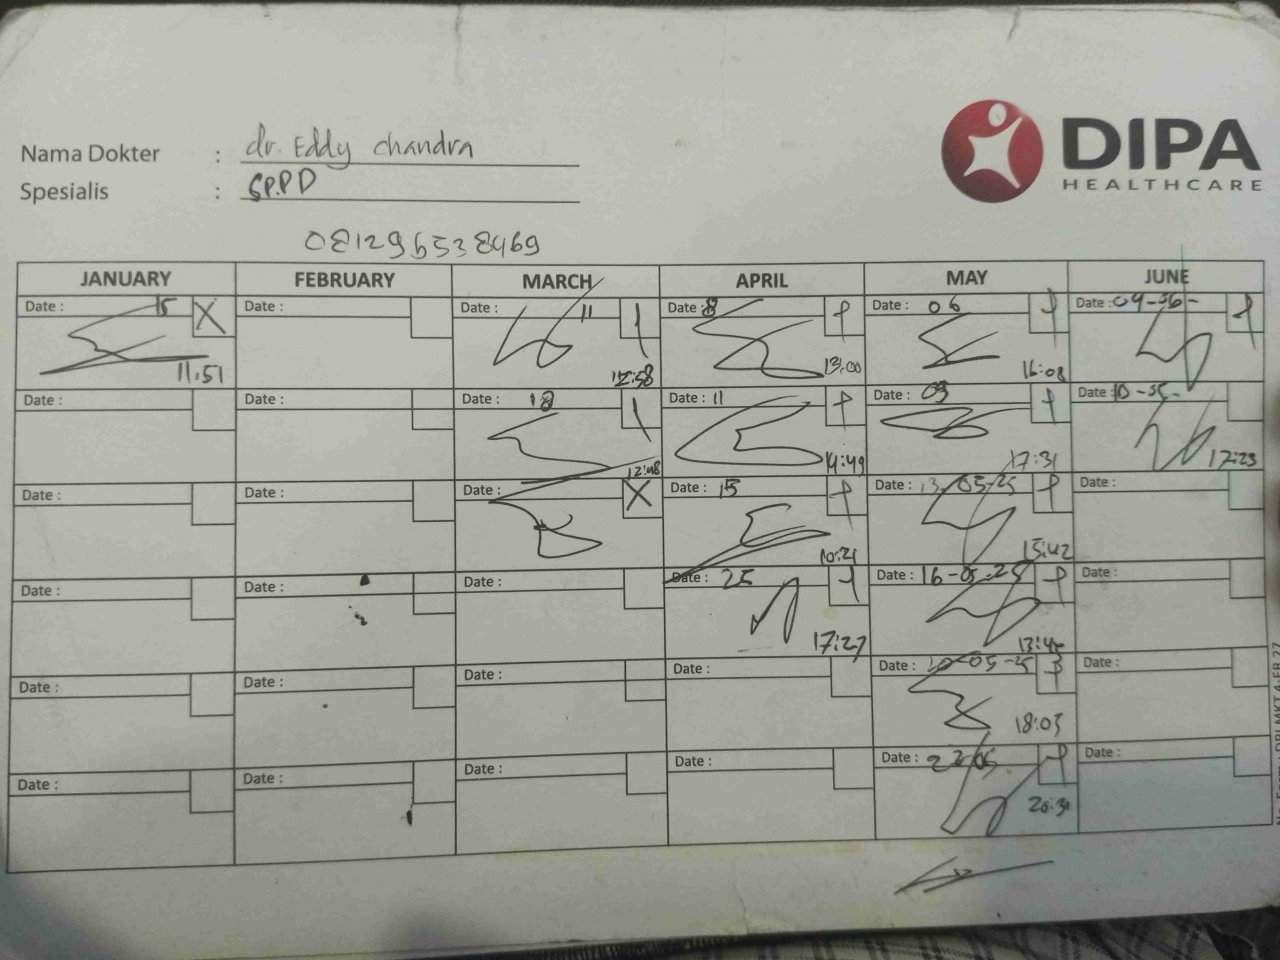 DIPA
HEALTHCARE
Nama Dokter : dr. Eddy Chandra
Spesialis : SP.PD
081296538469
JANUARY FEBRUARY MARCH APRIL MAY JUNE
Date : 15 Date : Date : 11 Date : 8 Date : 06 Date : 04-06-
11:51 12:58 13:00 16:08
Date : Date : Date : 18 Date : 11 Date : 09 Date :
12:48 14:49 17:31 17:23
Date : Date : Date : Date : 15 Date : 13-05-25 Date :
10:21 15:42
Date : Date : Date : Date : 25 Date : 16-05-25 Date :
17:27 13:45
Date : Date : Date : Date : Date : Date :
18:03
Date : Date : Date : Date : Date : 22/05 Date :